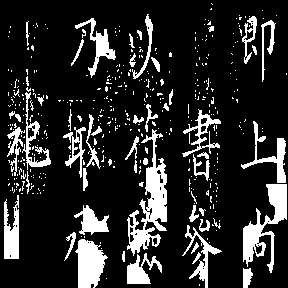 即上尚
書參
以符驗
乃敢承
祀